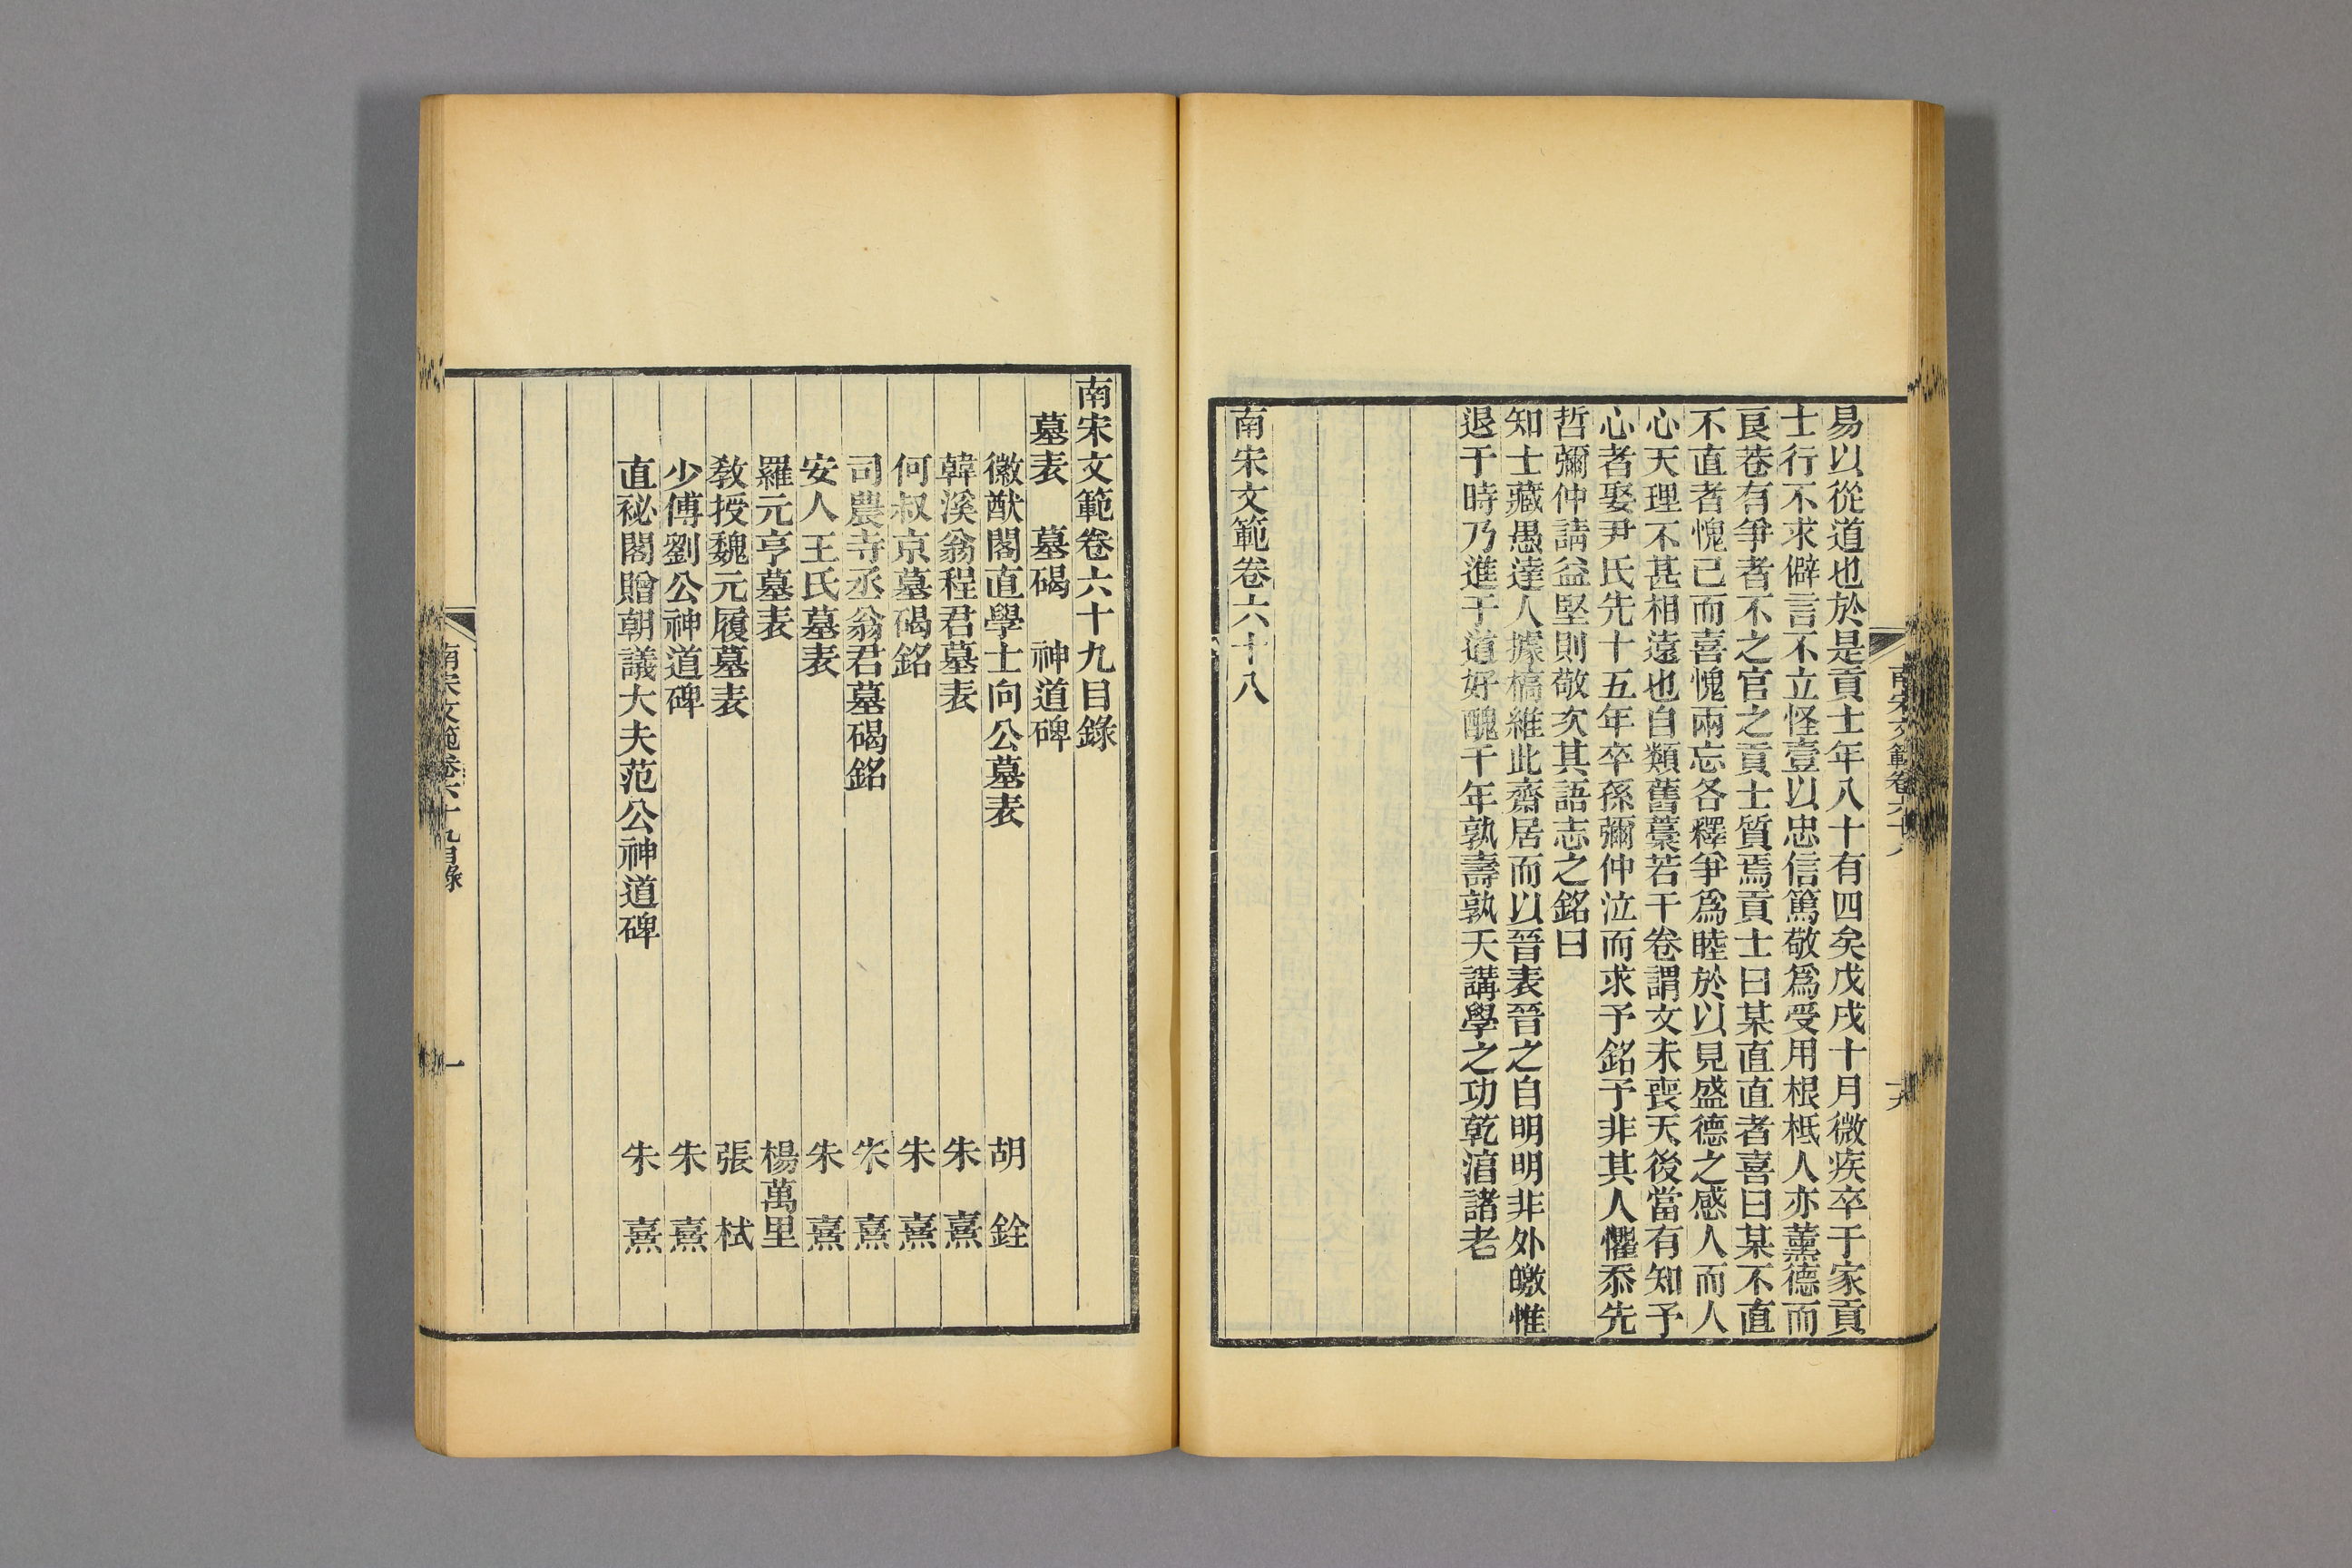 易以從道也於是貢士年八十有四矣戊戌十月微疾卒于家貢
士行不求僻言不立怪壹以忠信篤敬爲受用根柢人亦薰德而
良巷有爭者不之官之貢士質焉貢士曰某直直者喜曰某不直
不直者愧已而喜愧兩忘各釋爭爲睦於以見盛德之感人而人
心天理不甚相遠也自類舊藁若干卷謂文未喪天後當有知予
心者娶尹氏先十五年卒孫彌仲泣而求予銘予非其人懼忝先
哲彌仲請益堅則敬次其語志之銘曰
知士藏愚達人據槁維此齋居而以晉表晉之自明明非外皦惟
退于時乃進于道好醜千年孰壽孰夭講學之功乾淯諸老
南宋文範卷六十八
南宋文範卷六十八
十八
南宋文範卷六十九目錄
墓表　墓碣　神道碑
徽猷閣直學士向公墓表　胡銓
韓溪翁程君墓表　朱熹
何叔京墓碣銘　朱熹
司農寺丞翁君墓碣銘　朱熹
安人王氏墓表　朱熹
羅元亨墓表　楊萬里
敎授魏元履墓表　張栻
少傅劉公神道碑　朱熹
直祕閣贈朝議大夫范公神道碑　朱熹
南宋文範卷六十九目錄
一